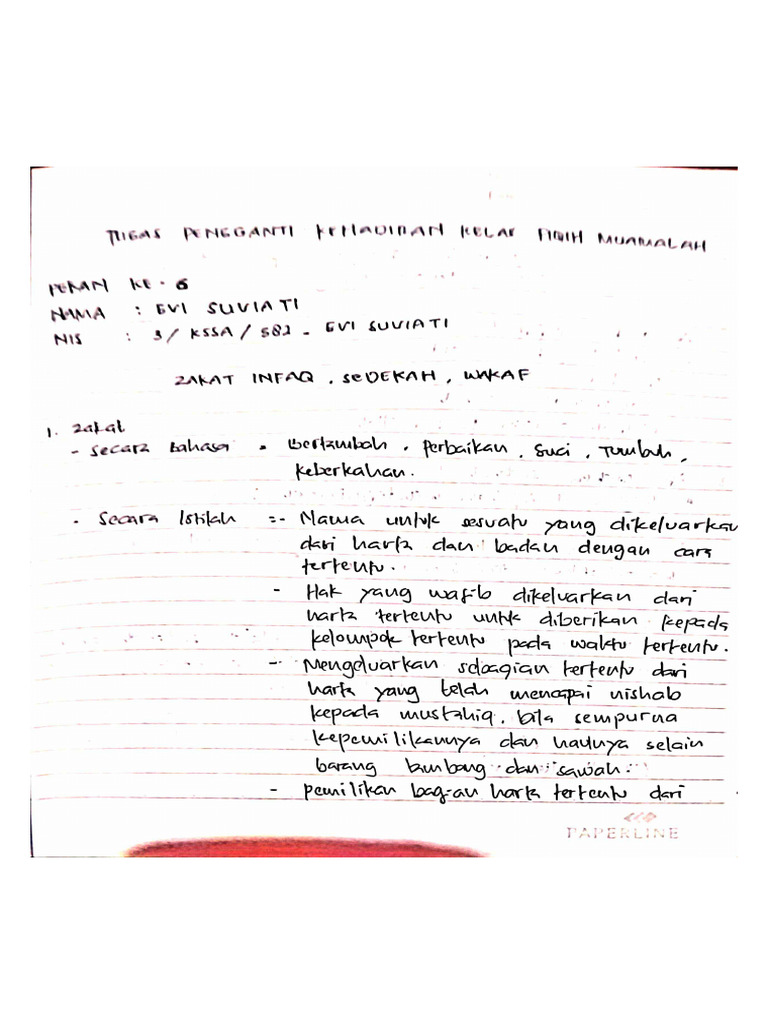 TUGAS PENGGANTI KEHADIRAN KELAS FIQIH MUAMALAH
PEKAN KE - 6
NAMA : EVI SUVIATI
NIS : 3 / KSSA / 582 - EVI SUVIATI
ZAKAT INFAQ , SEDEKAH , WAKAF
1. Zakat
- Secara Bahasa = Bertambah , Perbaikan , Suci , Tumbuh ,
Keberkahan .
- Secara Istilah = - Nama untuk sesuatu yang dikeluarkan
dari harta dan badan dengan cara
tertentu .
- Hak yang wajib dikeluarkan dari
harta tertentu untuk diberikan kepada
kelompok tertentu pada waktu tertentu .
- Mengeluarkan sebagian tertentu dari
harta yang telah mencapai nishab
kepada mustahiq , bila sempurna
kepemilikannya dan haulnya selain
barang tambang dan sawah .
- pemilikan bagian harta tertentu dari
PAPERLINE